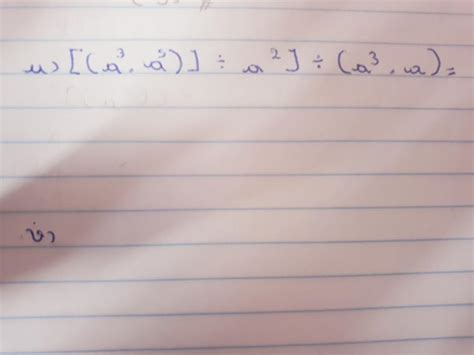 u) [(a³ . a⁵)] ÷ a²] ÷ (a³ . a) =
v)